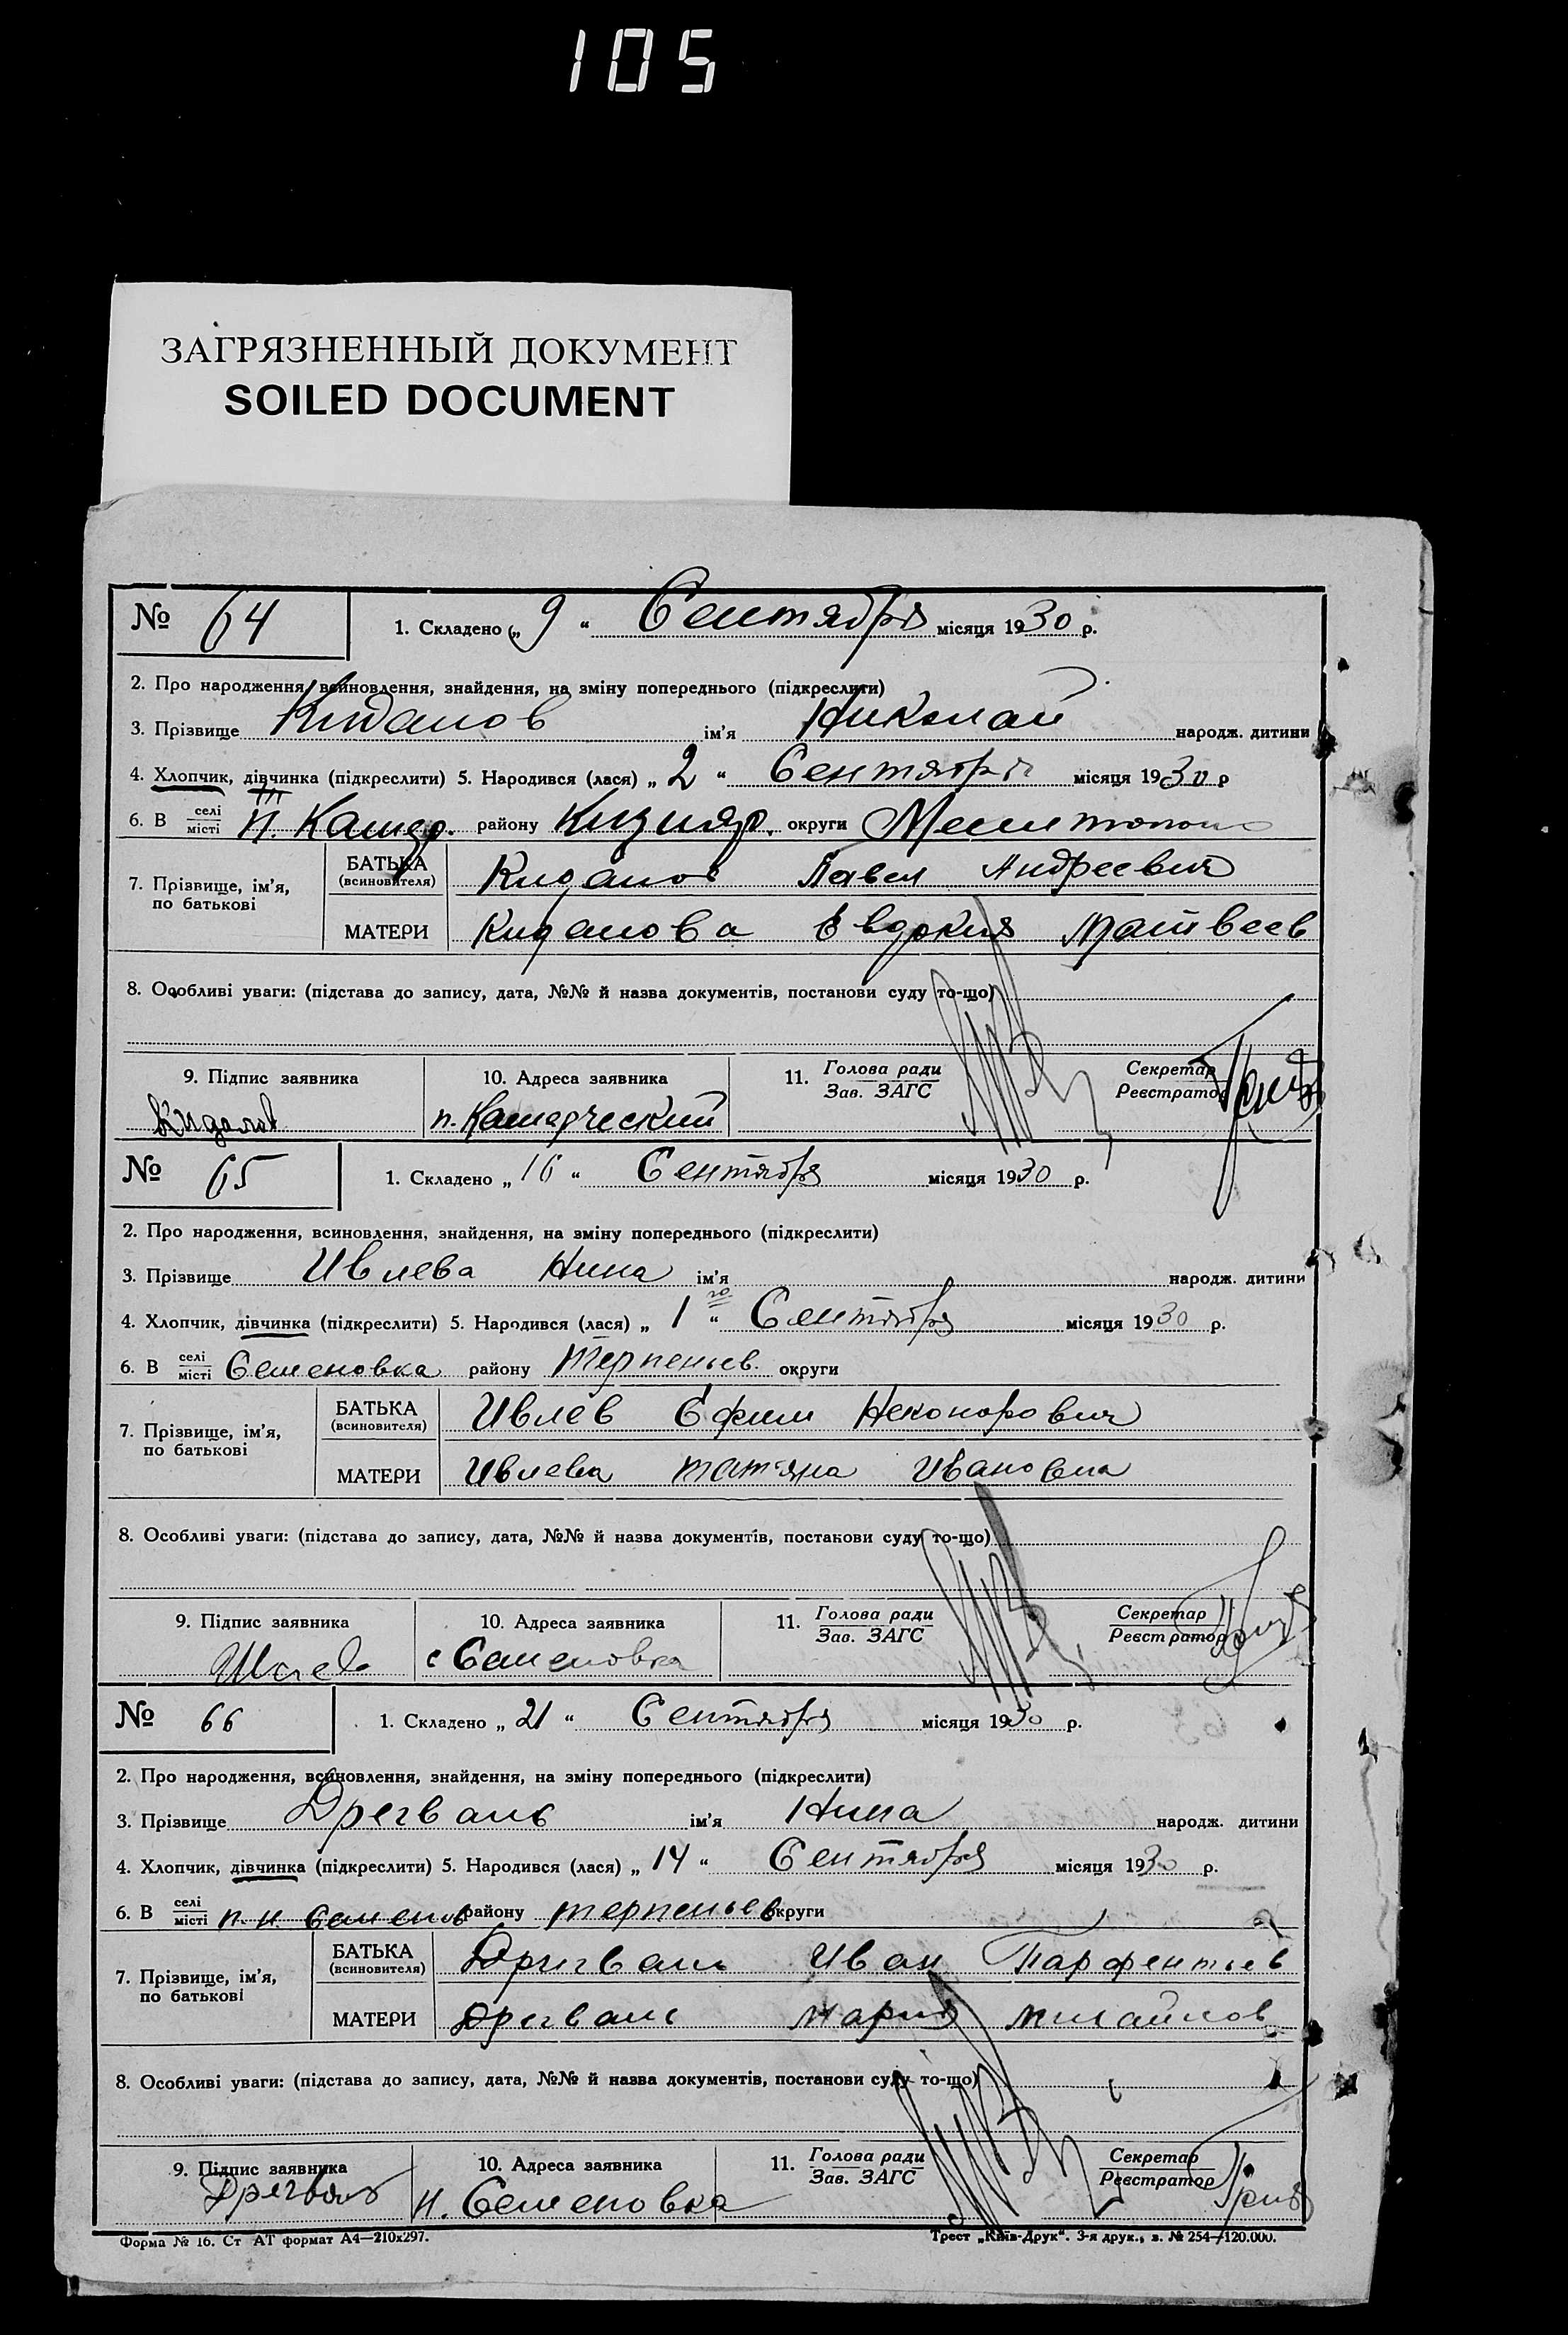 105
ЗАГРЯЗНЕННЫЙ ДОКУМЕНТ
SOILED DOCUMENT
№ 64 1. Складено „ 9 “ Сентября місяця 1930 р.
2. Про народження, всиновлення, знайдення, на зміну попереднього (підкреслити)
3. Прізвище Кидалов ім’я Николай народж. дитини
4. Хлопчик, дівчинка (підкреслити) 5. Народився (лася) „ 2 “ Сентября місяця 1930 р
6. В селі місті п. району Кизияр. округи
7. Прізвище, ім’я, по батькові
БАТЬКА (всиновителя) Кидалов Павел Андреевич
МАТЕРИ Кидалова Евдокия Матвеев
8. Особливі уваги: (підстава до запису, дата, №№ й назва документів, постанови суду то-що)
9. Підпис заявника 10. Адреса заявника 11. Голова ради Зав. ЗАГС Секретар Реєстратор
Кидалов п.
№ 65 1. Складено „ 16 “ Сентября місяця 1930 р.
2. Про народження, всиновлення, знайдення, на зміну попереднього (підкреслити)
3. Прізвище Ивлева Нина ім’я народж. дитини
4. Хлопчик, дівчинка (підкреслити) 5. Народився (лася) „ 1 го “ Сентября місяця 1930 р.
6. В селі місті Семеновка району Терпеньев. округи
7. Прізвище, ім’я, по батькові
БАТЬКА (всиновителя) Ивлев Ефим Неконорович
МАТЕРИ Ивлева Татьяна Ивановна
8. Особливі уваги: (підстава до запису, дата, №№ й назва документів, постанови суду то-що)
9. Підпис заявника 10. Адреса заявника 11. Голова ради Зав. ЗАГС Секретар Реєстратор
с Семеновка
№ 66 1. Складено „ 21 “ Сентября місяця 1930 р.
2. Про народження, всиновлення, знайдення, на зміну попереднього (підкреслити)
3. Прізвище Дрегваль ім’я Нина народж. дитини
4. Хлопчик, дівчинка (підкреслити) 5. Народився (лася) „ 14 “ Сентября місяця 1930 р.
6. В селі місті п. н. Семенов району Терпеньев округи
7. Прізвище, ім’я, по батькові
БАТЬКА (всиновителя) Дригваль Иван Парфентьев
МАТЕРИ Дрегваль Мария Михайлов
8. Особливі уваги: (підстава до запису, дата, №№ й назва документів, постанови суду то-що)
9. Підпис заявника 10. Адреса заявника 11. Голова ради Зав. ЗАГС Секретар Реєстратор
Дрегваль н. Семеновка
Форма № 16. Ст АТ формат А4—210х297. Трест „Київ-Друк“. 3-я друк., з. № 254—120.000.